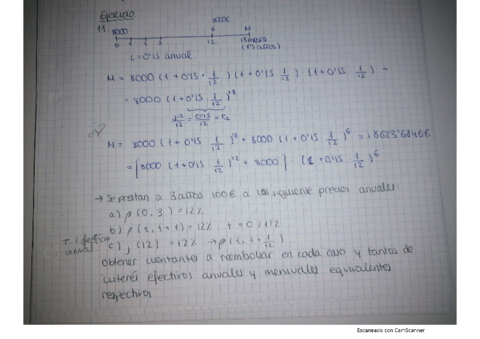 Ejercicio
11.
8000 8000
0 1 2 3 12 18 meses
(1'5 años)
i = 0'15 anual
M = 8000 (1 + 0'15 · 1/12) (1 + 0'15 1/12) (1 + 0'15 1/12) =
= 8000 (1 + 0'15 · 1/12)^18
J12/12 = 0'15/12 = i12
M = 8000 (1 + 0'15 · 1/12)^18 + 8000 (1 + 0'15 · 1/12)^6 = 18623'6846€
= [8000 (1 + 0'15 · 1/12)^12 + 8000] (1 + 0'15 · 1/12)^6
→ Se prestan a 3 años 100€ a los siguiente precios anuales:
a) ρ(0, 3) = 12%
b) ρ(t, t+1) = 12% t = 0, 1, 2
T. efectivo anual
c) J(12) = 12% → ρ(t, t + 1/12)
obtener cuantante a reembolsar en cada caso y tantos de
interés efectivos anuales y mensuales equivalentes
respectivos
Escaneado con CamScanner